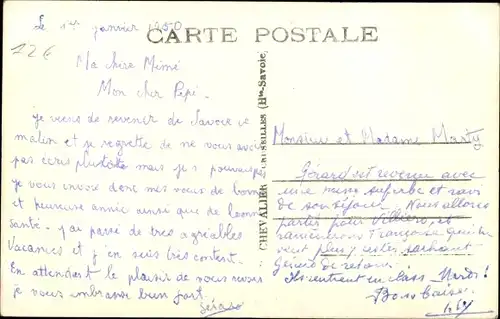 Le 1er janvier 1950
CARTE POSTALE
12€
Ma chère Mémé
Mon cher Pépé.
je viens de revenir de Savoie ce
matin et je regrette de ne vous avoir
pas écris plustôt mais je pouvais pas
je vous envoie donc mes vœux de bonne
et heureuse année ainsi que de bonne
santé. j'ai passé de très agréables
Vacances et j'en suis très content.
En attendant le plaisir de vous revoir
je vous embrasse bien fort.
Gérard
(CHEVALIER (Hte-Savoie)
Monsieur et Madame Marty
Gérard est revenu avec
une mine superbe et ravi
de son séjour. Nous allons
partir pour Villiers et
ramènerons Françoise qui ne
veut plus rester sachant
Gérard de retour.
Ils rentrent en class Mardi!
Bons baisers